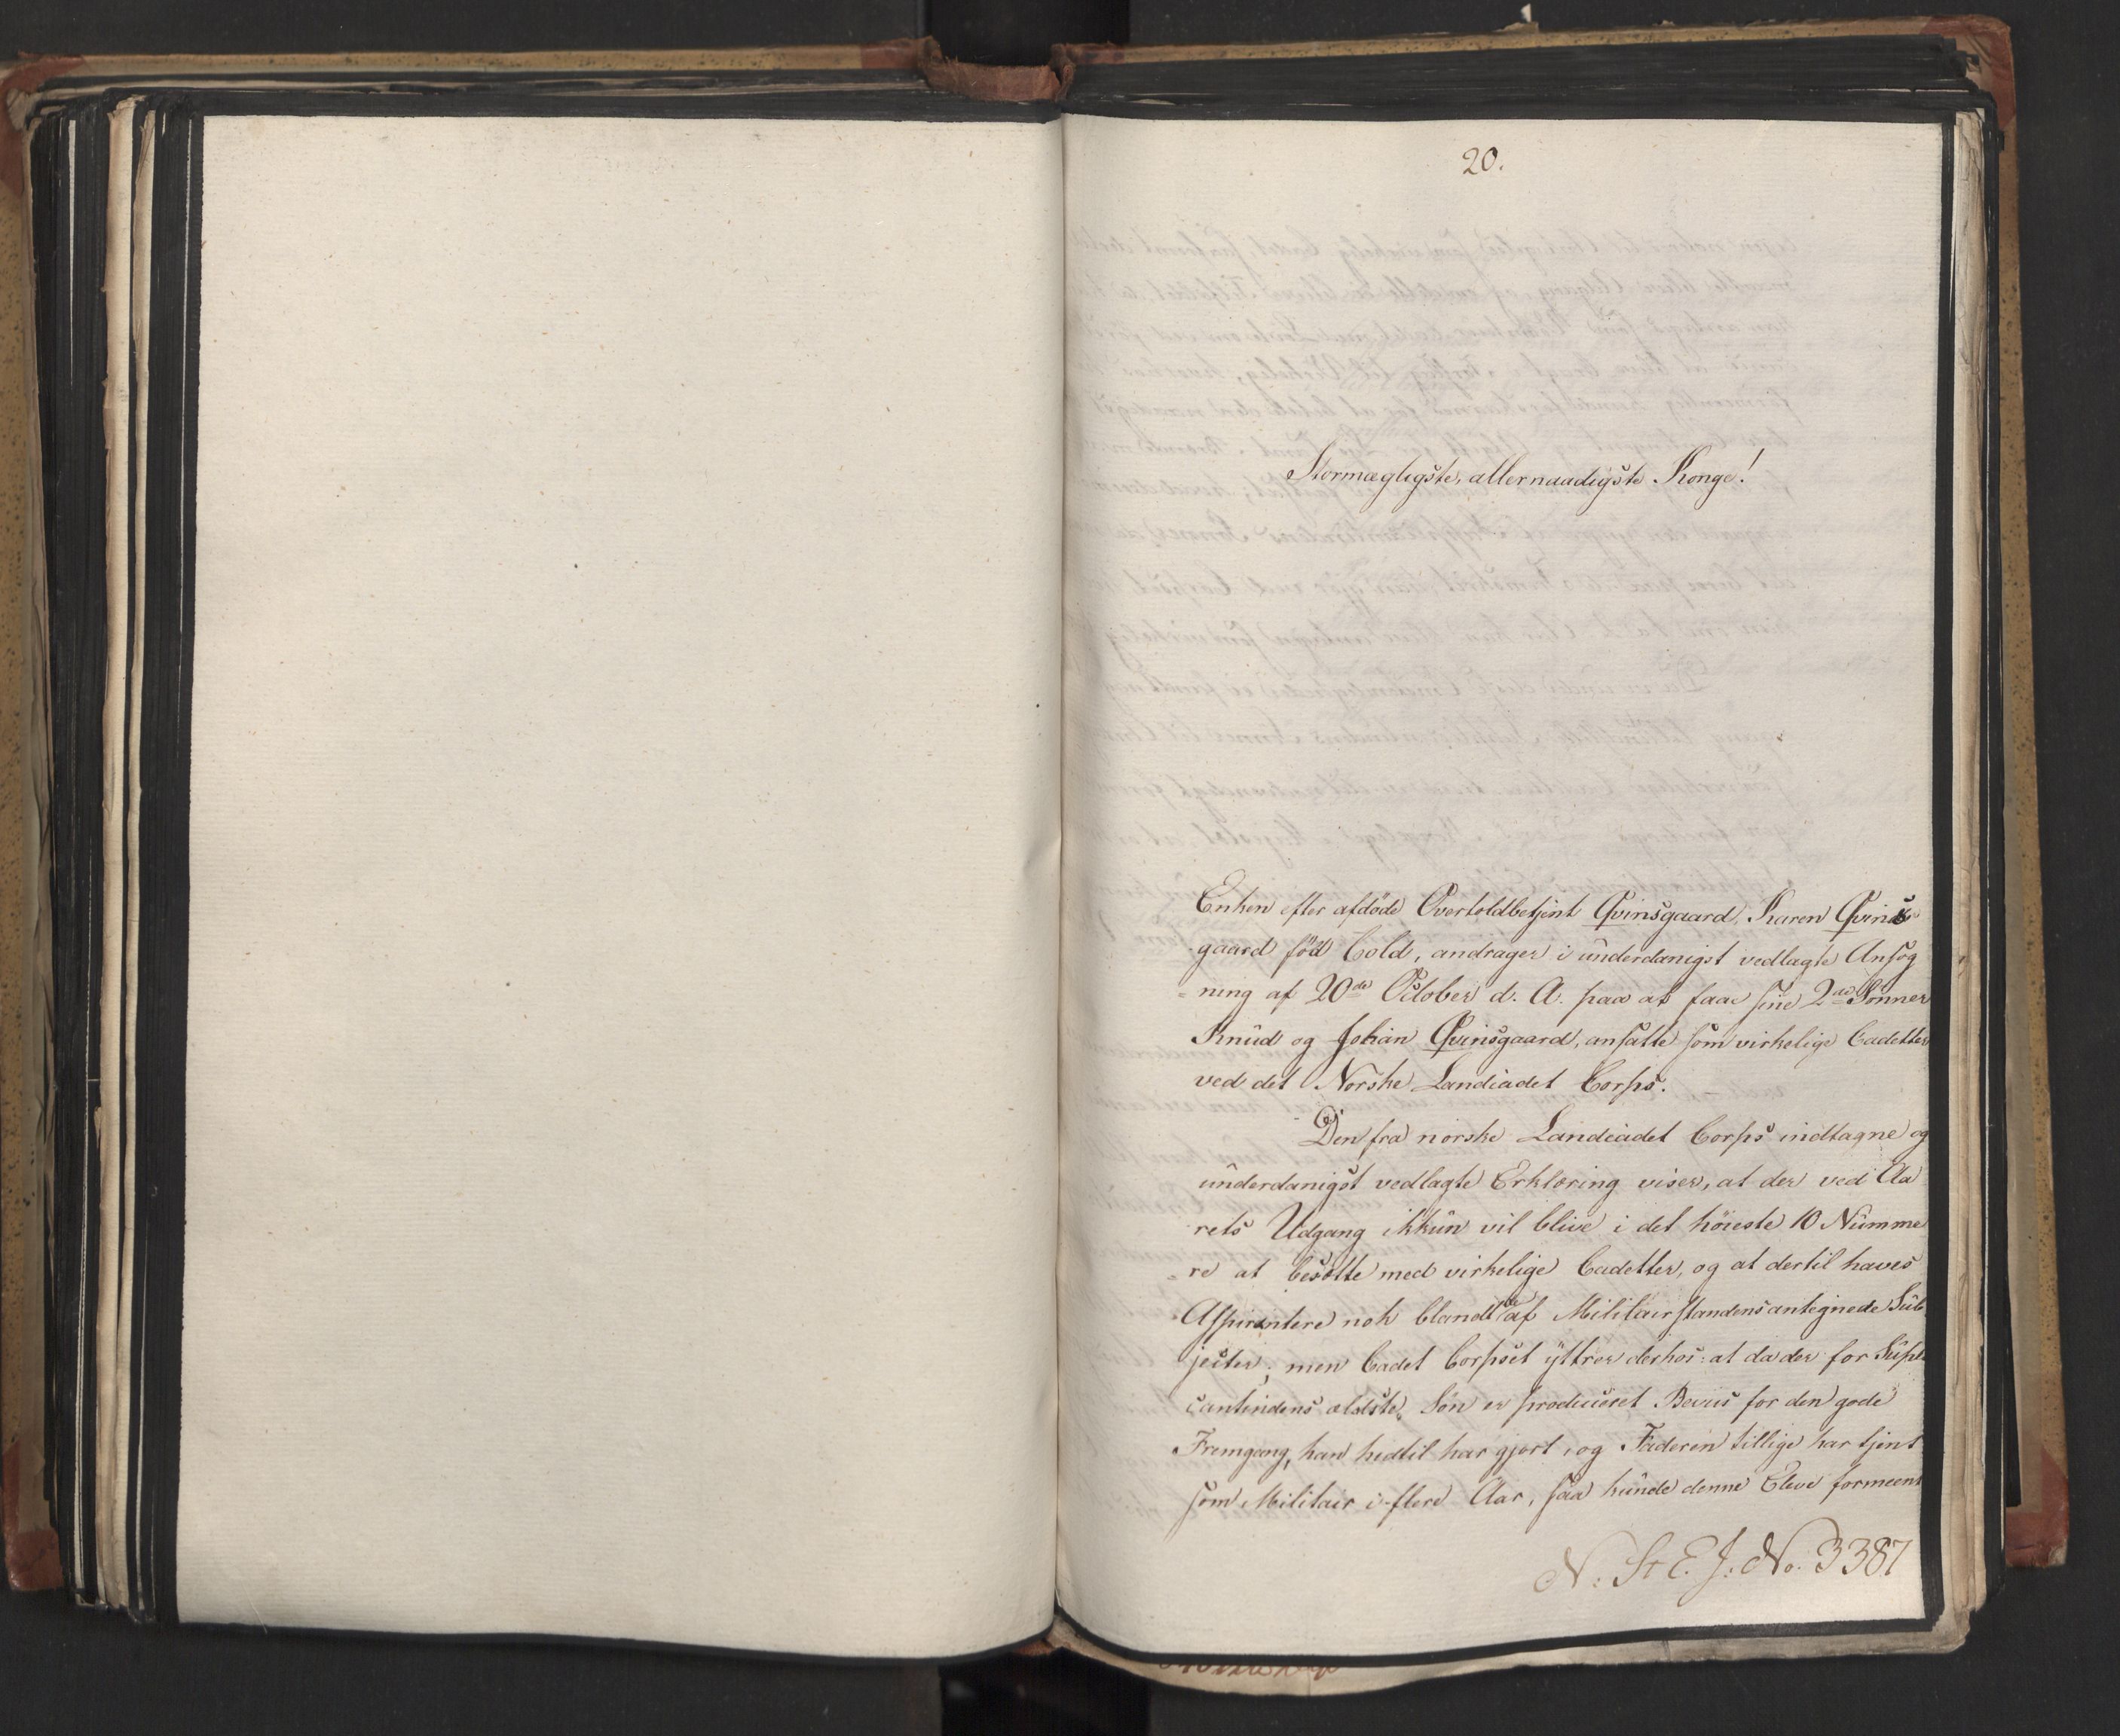 20.
Stormægtigste, allernaadigste Konge!
Enken efter afdöde Overtoldbetjent Qvinsgaard, Karen Qvins
gaard föd Cold, andrager i underdanigst vedlagte Ansøg
=ning af 20de October d. A. paa at faae sine 2de Sönner
Knud og Johan Qvinsgaard, ansatte som virkelige Cadetter
ved det Norske Landcadet Corps.
Den fra norske Landcadet Corps indtagne og
underdanigst vedlagte Erklæring viser, at der ved Aa
rets Udgang ikkun vil blive i det höieste 10 Numme
=re at besætte med virkelige Cadetter, og at dertil haves
Aspirantere nok blandt de af Militairstandens antegnede Sub
jecter; men Cadet Corpset yttrer derhos: at da der for Supli
cantindens ældste Sön er produceret Beviis for den gode
Fremgang, han hidtil har gjort, og Faderen tillige har tjent
som Militair i flere Aar, saa kunde denne Eleve formeent
N: St E. J: No. 3387